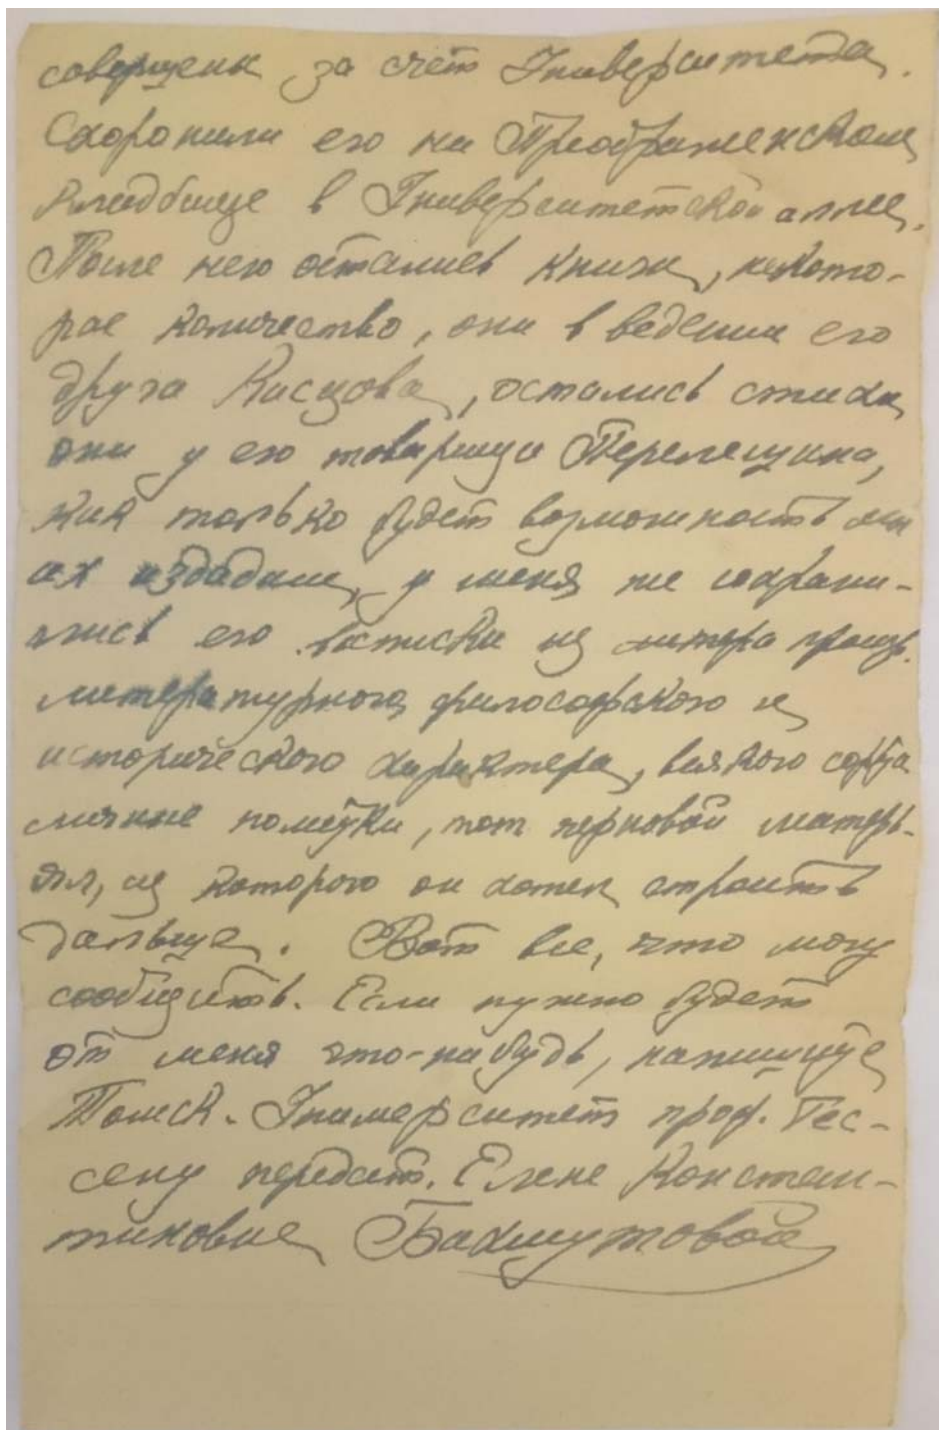 совершены за счет Университета.
Схоронили его на Преображенском
кладбище в Университетской аллее.
После него остались книги, некото-
рое количество, они в ведении его
друга, остались стихи,
они у его товарища Перелешина,
как только будет возможность мы
их издадим, у меня же сохрани-
лись его выписки из литера произв.
литературного, философского и
исторического характера, всякого сорта
личные пометки, тот черновой матерь-
ял, из которого он хотел строить
дальше. Вот все, что могу
сообщить. Если нужно будет
от меня что-нибудь, напишите
Томск. Университет проф. Гес-
сену передать. Елене Констан-
тиновне Бахмутовой